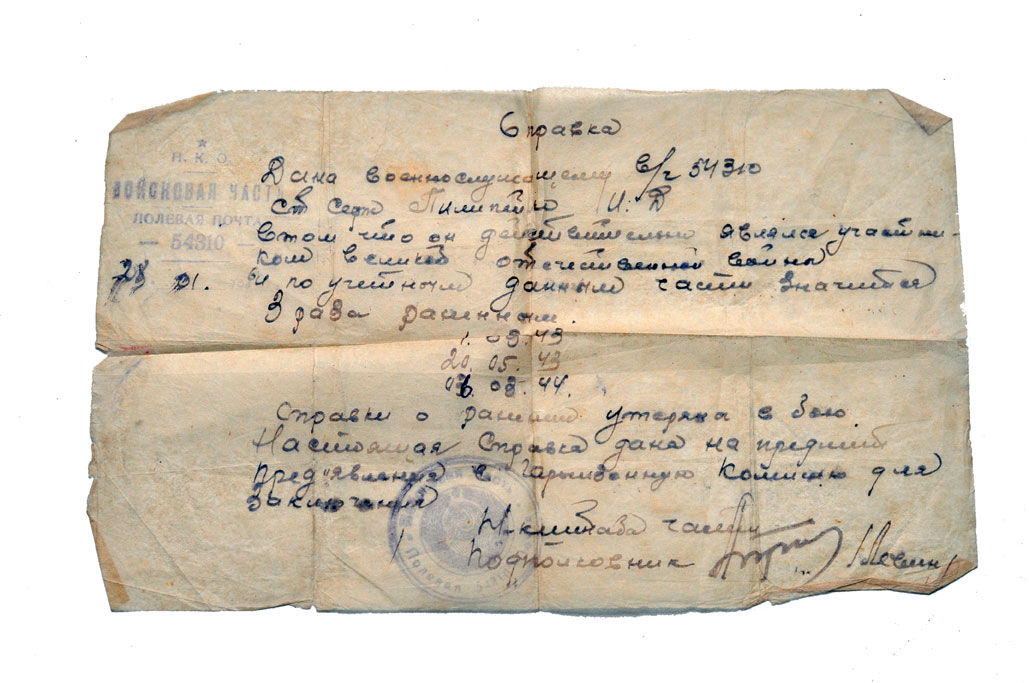 Н. К. О.
ВОЙСКОВАЯ ЧАСТЬ
ПОЛЕВАЯ ПОЧТА
— 54310 —
Справка
Дана военнослужащему в/ч 54310
ст серж Пилипейко И. Д
в том что он действительно являлся участни-
ком великой отечественной войны
и по учетным данным части значится
3 раза раненным.
1. 03. 43
20. 05. 43
03. 44.
Справки о ранении утеряна в бою
Настоящая справка дана на предмет
пред"явления в гарнизонную комисию для
заключения
Н-к штаба части
Подполковник
Полевая